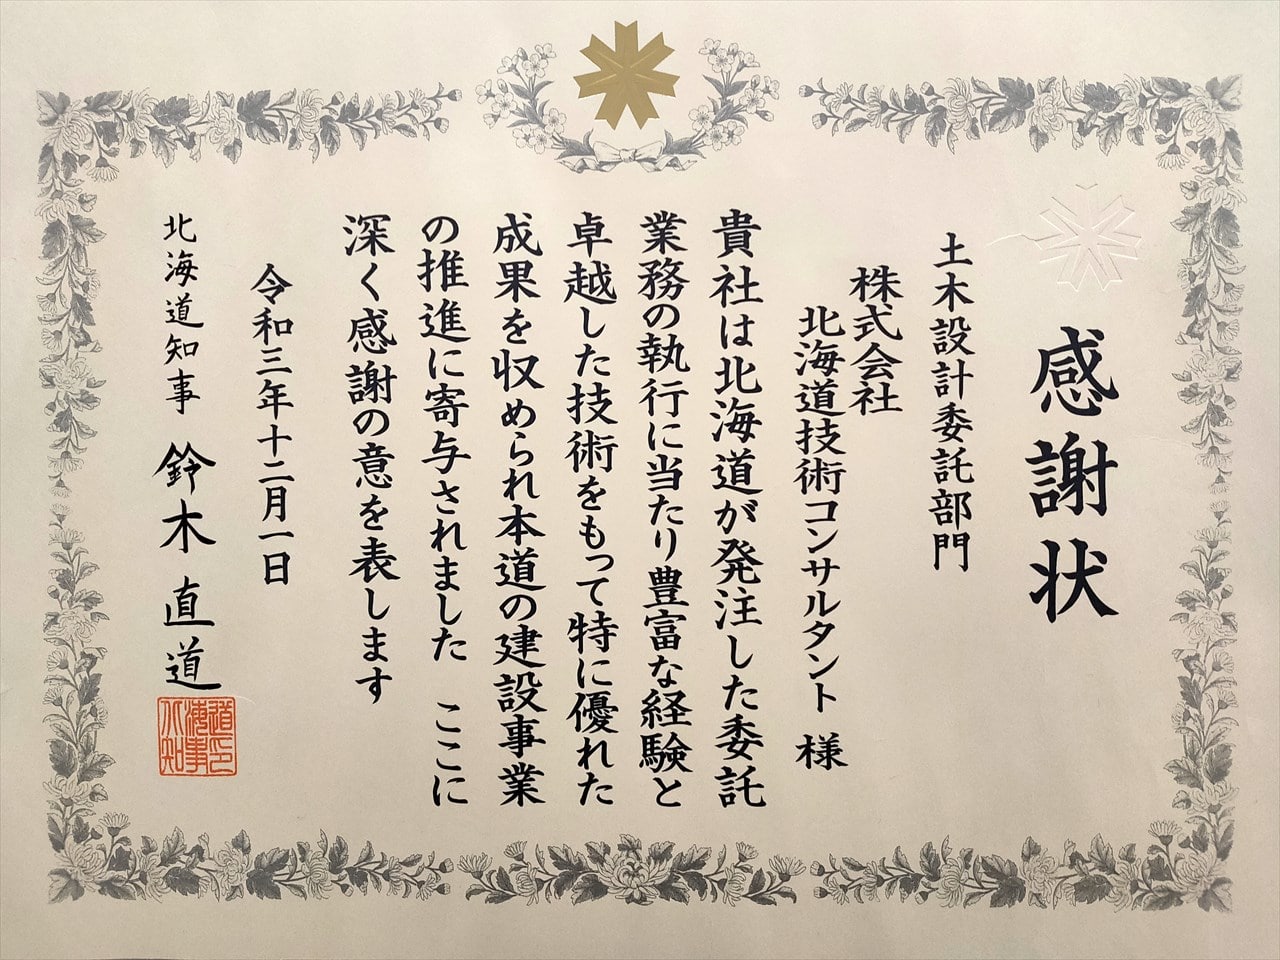 感謝状
土木設計委託部門
株式会社
北海道技術コンサルタント 様
貴社は北海道が発注した委託
業務の執行に当たり豊富な経験と
卓越した技術をもって特に優れた
成果を収められ本道の建設事業
の推進に寄与されました ここに
深く感謝の意を表します
令和三年十二月一日
北海道知事 鈴木直道
北海道知事印